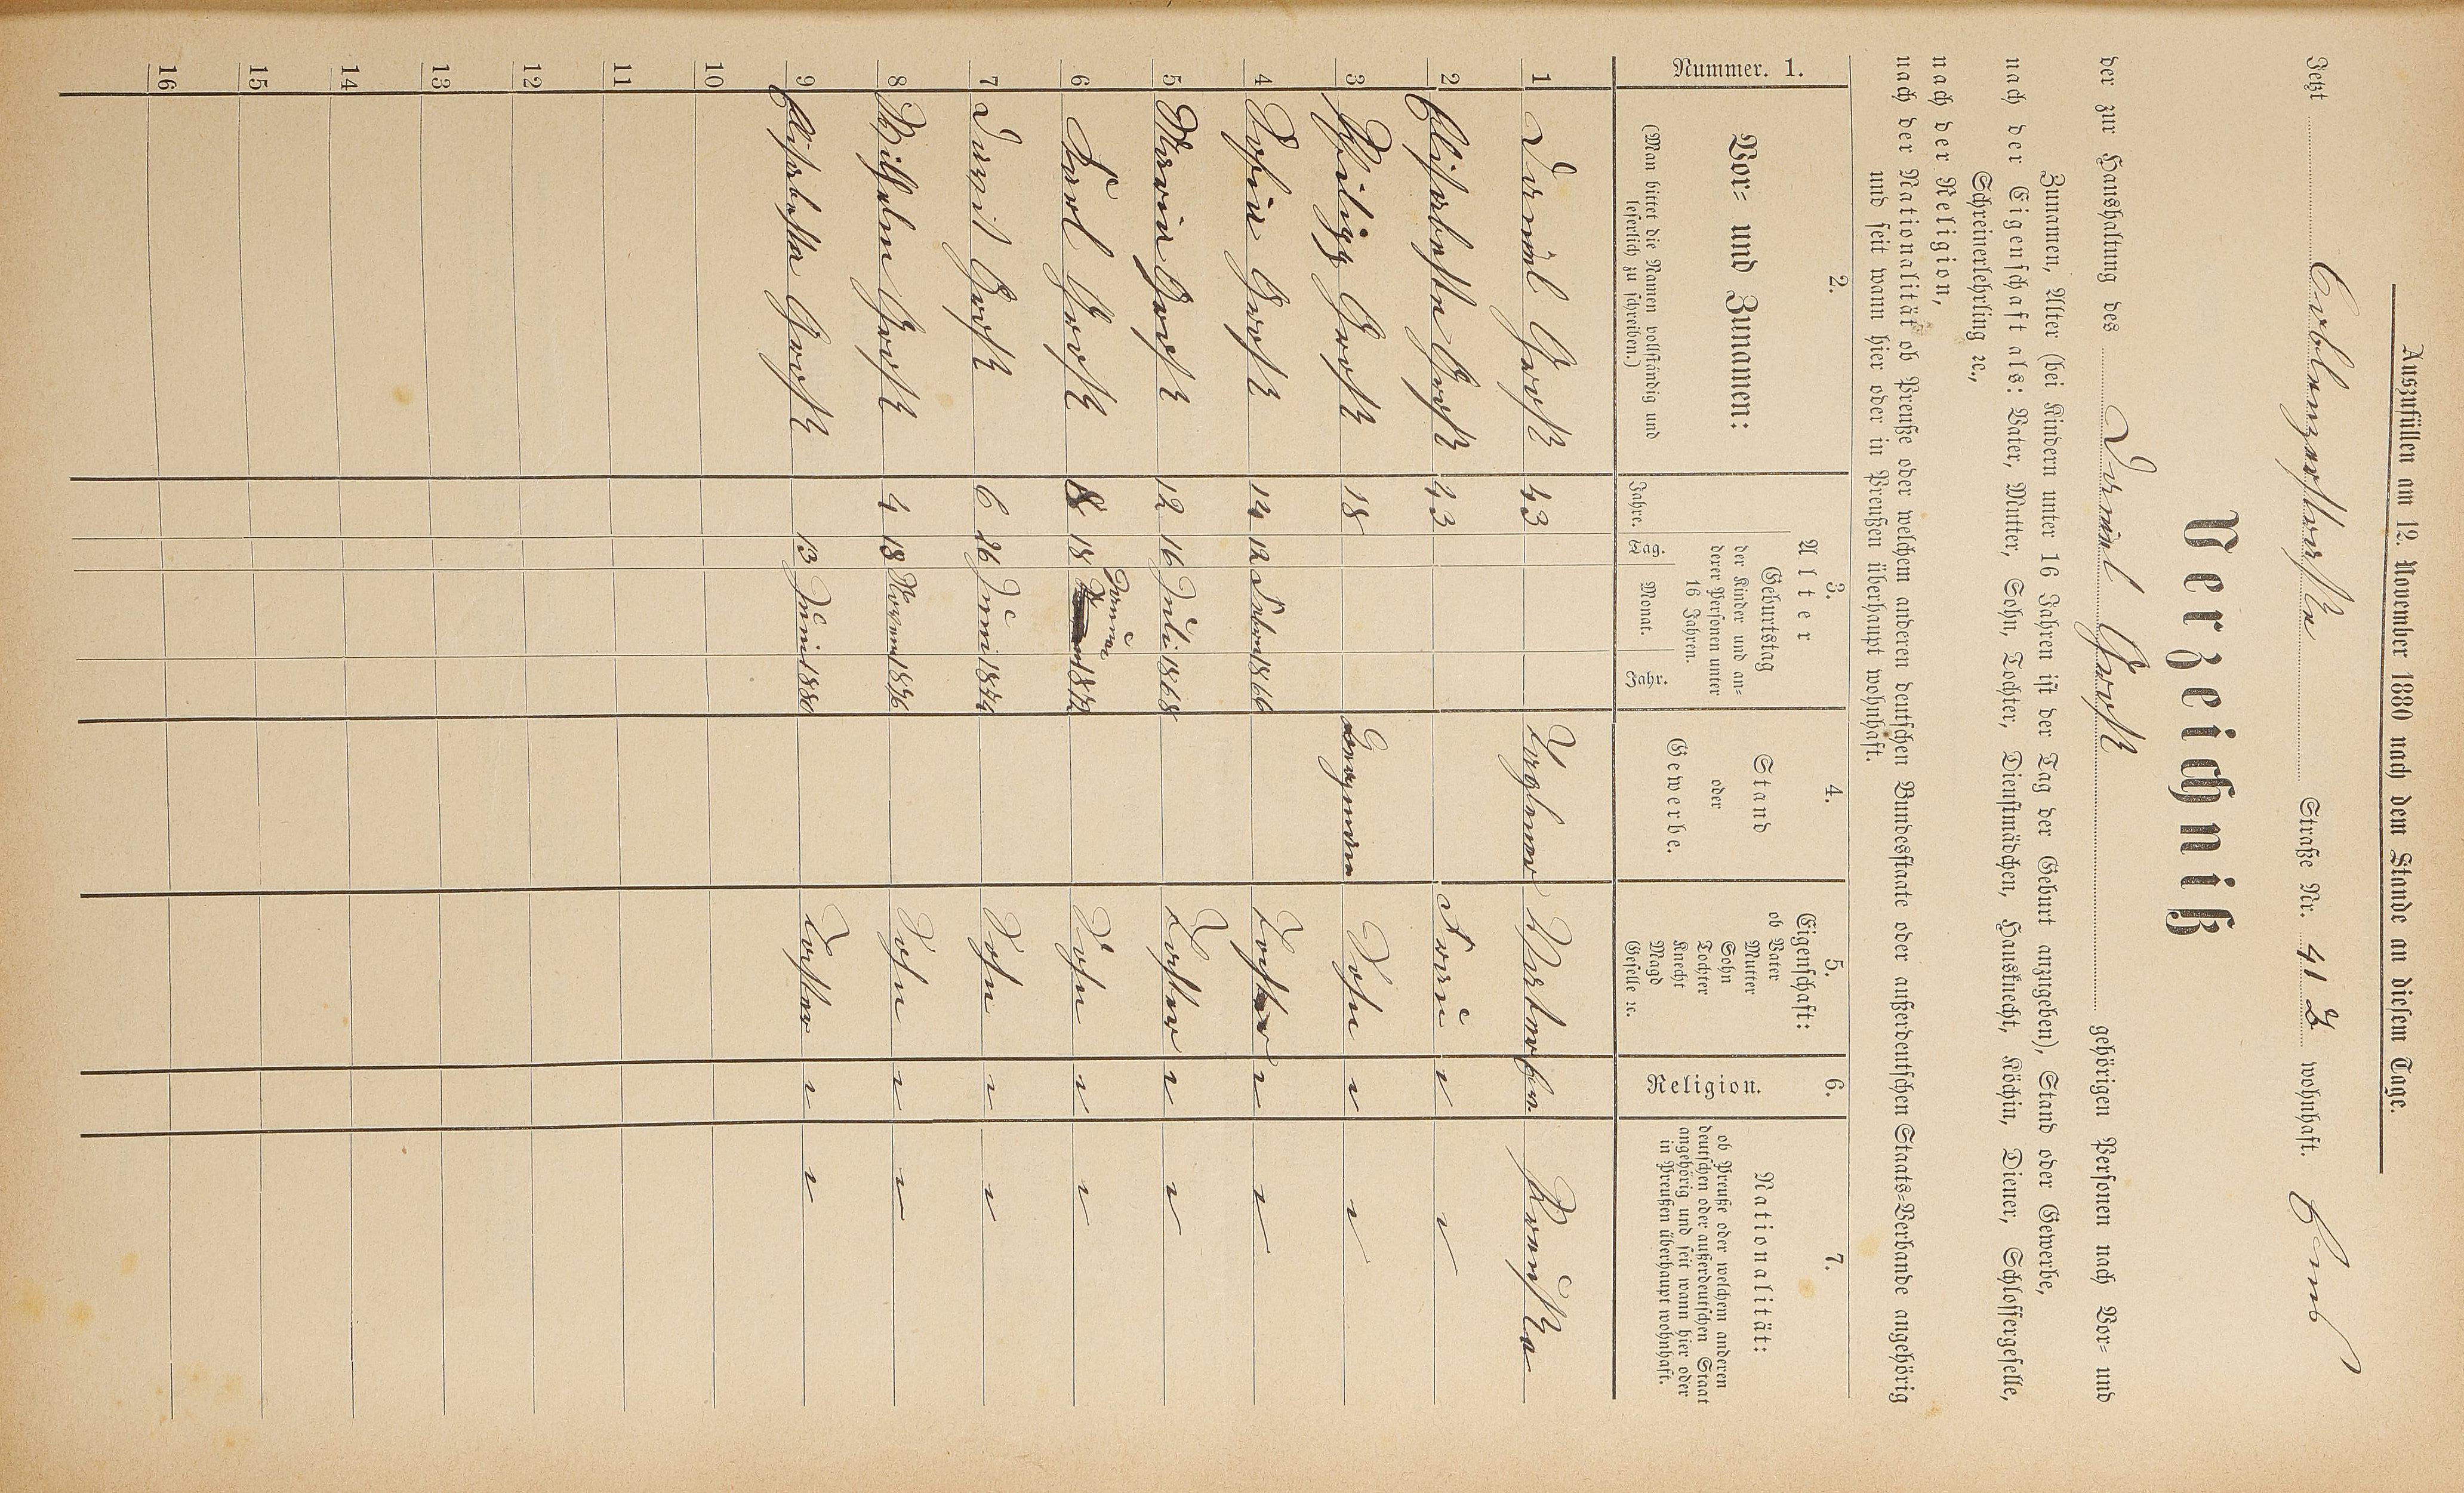 Auszufüllen am 12. November 1880 nach dem Stande an diesem Tage.
Jetzt Coblenzerstraße Straße Nr. 41 B wohnhaft. Ems
Verzeichniß
der zur Haushaltung des Daniel gehörigen Personen nach Vor= und
Zunamen, Alter (bei Kindern unter 16 Jahren ist der Tag der Geburt anzugeben), Stand oder Gewerbe,
nach der Eigenschaft als: Vater, Mutter, Sohn, Tochter, Dienstmädchen, Hausknecht, Köchin, Diener, Schlossergeselle,
Schreinerlehrling ꝛc.,
nach der Religion,
nach der Nationalität ob Preuße oder welchem anderen deutschen Bundesstaate oder außerdeutschen Staats=Verbande angehörig
und seit wann hier oder in Preußen überhaupt wohnhaft.
Nummer. 1.
2.
Vor= und Zunamen:
(Man bittet die Namen vollständig und
leserlich zu schreiben.)
3.
Alter
Geburtstag
der Kinder und an=
derer Personen unter
16 Jahren.
Jahre. Tag. Monat. Jahr.
4.
Stand
oder
Gewerbe.
5.
Eigenschaft:
ob Vater
Mutter
Sohn
Tochter
Knecht
Magd
Geselle ꝛc.
6.
Religion.
7.
Nationalität:
ob Preuße oder welchen anderen
deutschen oder außerdeutschen Staat
angehörig und seit wann hier oder
in Preußen überhaupt wohnhaft.
1 Daniel 43 Vater Preuße
2 Elisabetha 43 Frau " "
3 Philipp 18 Bergmann Sohn " "
4 Sofia 14 12 Febru 1866 Tochter " "
5 Maria 12 16 Juli 1868 Tochter " "
6 Karl 8 18 Januar 1872 Sohn " "
7 Daniel 6 26 Juni 1874 Sohn " "
8 Wilhelm 4 13 Novem 1876 Sohn " "
9 Elisabetha 13 Juni 1880 Tochter " "
10
11
12
13
14
15
16